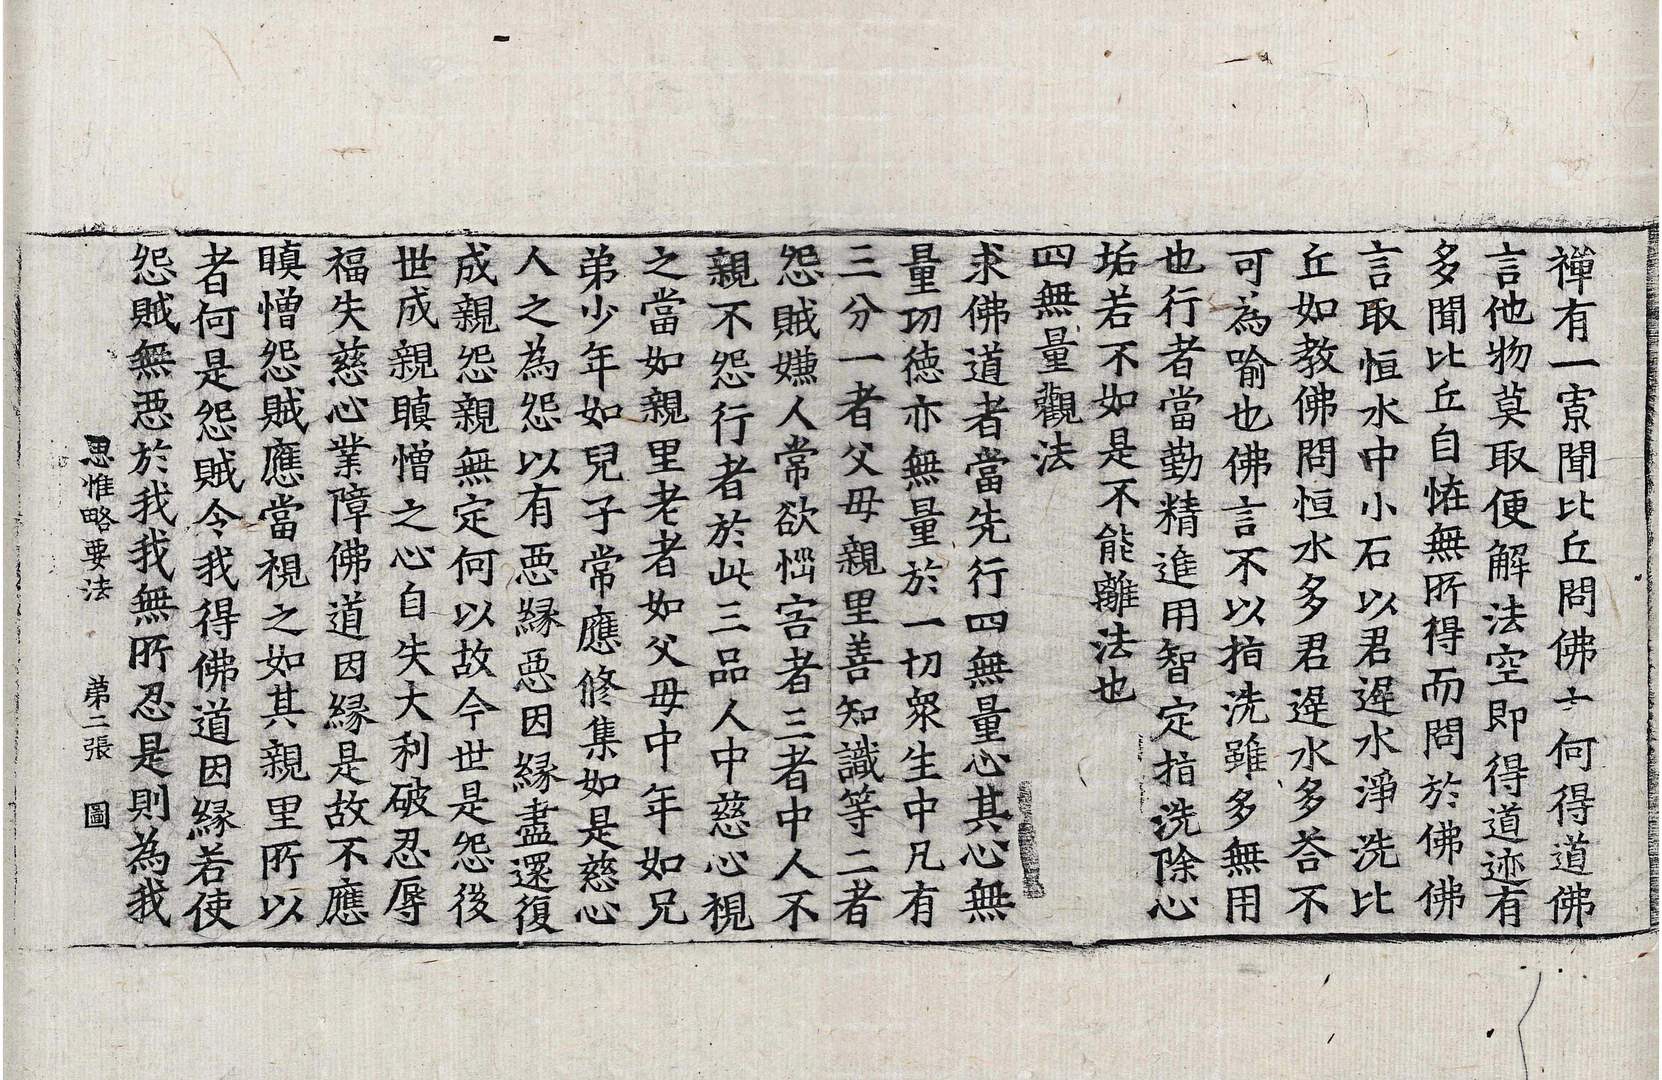 禪有一寡聞比丘問佛言何得道佛
言他物莫取便解法空即得道迹有
多聞比丘自恠無所得而問於佛佛
言取恒水中小石以君遟水淨洗比
丘如教佛問恒水多君遟水多荅不
可為喻也佛言不以指洗雖多無用
也行者當勤精進用智定指洗除心
垢若不如是不能離法也
四無量觀法
求佛道者當先行四無量心其心無
量功徳亦無量於一切衆生中凡有
三分一者父母親里善知識等二者
怨賊嫌人常欲惱害者三者中人不
親不怨行者於此三品人中慈心視
之當如親里老者如父母中年如兄
弟少年如兒子常應修集如是慈心
人之為怨以有惡縁惡因縁盡還復
成親怨親無定何以故今世是怨後
世成親瞋憎之心自失大利破忍辱
福失慈心業障佛道因縁是故不應
瞋憎怨賊應當視之如其親里所以
者何是怨賊令我得佛道因縁若使
怨賊無惡於我我無所忍是則為我
思惟略要法 第二張 圖